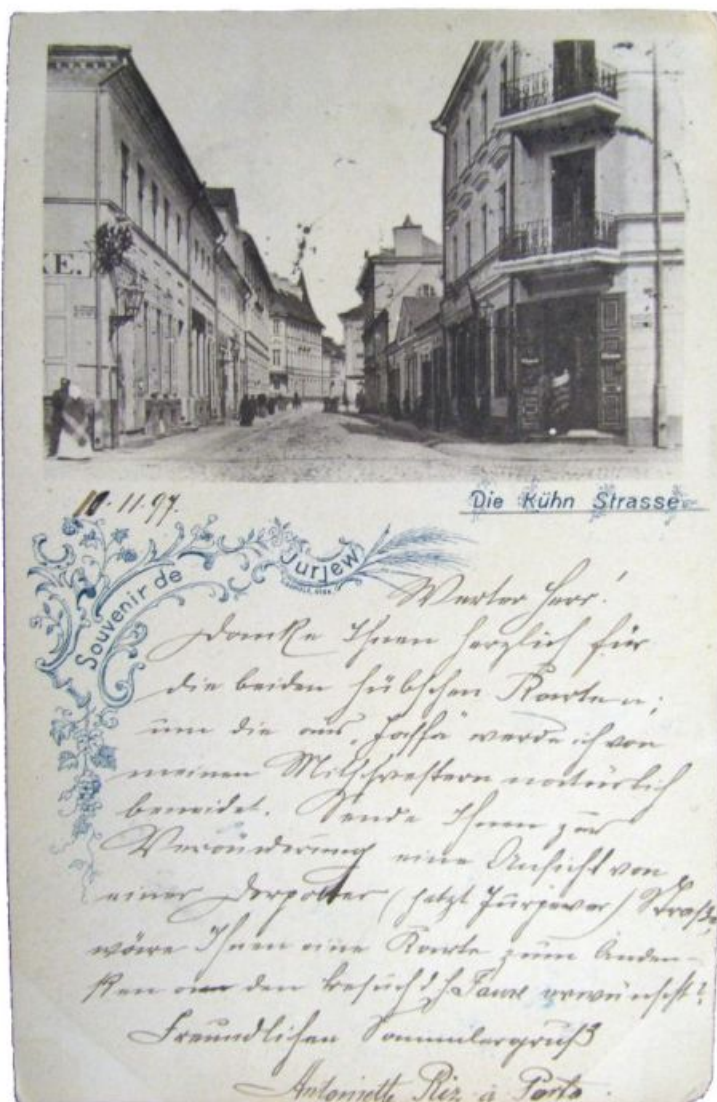 E.
10.11.97.
Die Kühn Strasse
Souvenir de Jurjew
Werter Herr!
Danke Ihnen herzlich für
die beiden hübschen Karten;
um die aus „Jaffa" werde ich von
meinen Milschwestern natürlich
beneidet. Sende Ihnen zur
Veränderung eine Ansicht von
einer Dorpater (jetzt Jurjewer) Straße,
wäre Ihnen eine Karte zum Anden-
ken an den Besuch d. H. Faure erwünscht?
Freundlichen Sammlergruß
Antoniette